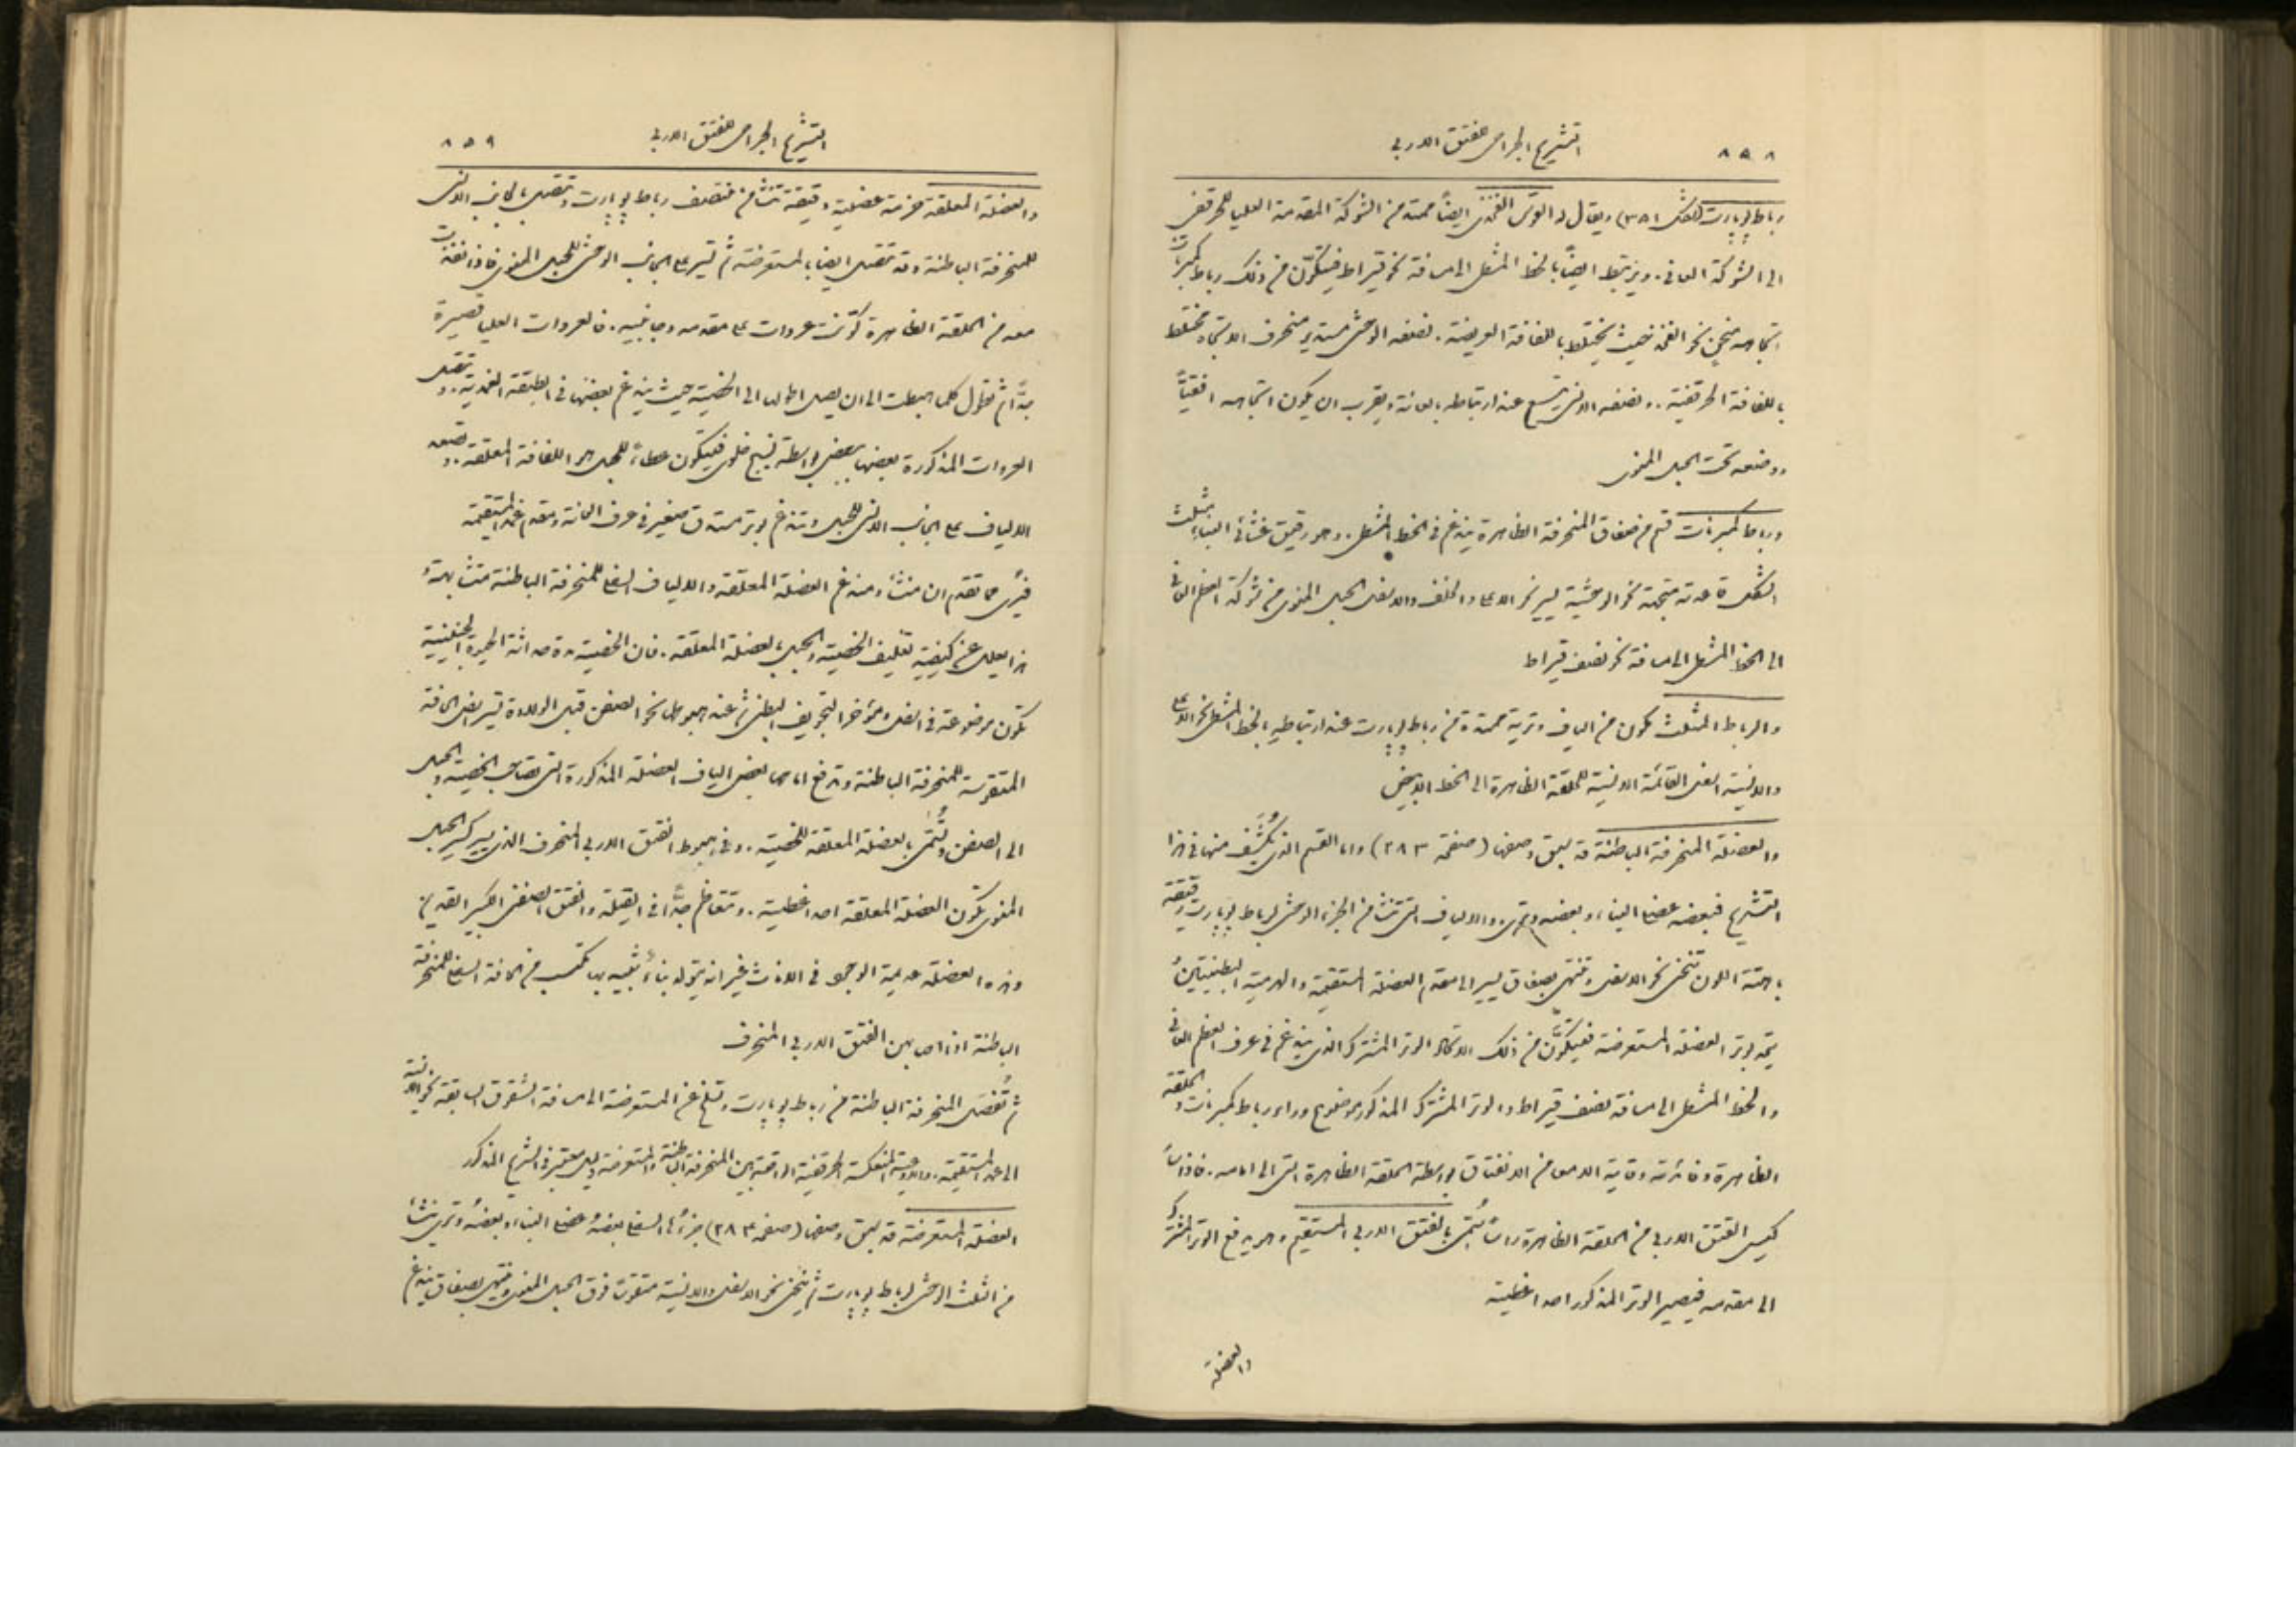 ٨٥٨
التشريح الجراحي للفتق الاربي
رباط بوبارت (الشكل ٣٨١) ويقال له القوس الفخذي ايضاً ممتد من الشوكة المقدمة العليا للحرقفي
الى شوكة العاني. ويرتبط ايضاً بالخط المشطي الى مسافة نحو قيراط فيتكوّن من ذلك رباط كمبرنات
اتجاهه منحنٍ نحو الفخذ حيث يختلط باللفافة العريضة. نصفه الوحشي مستدير منحرف الاتجاه مختلط
باللفافة الحرقفية. ونصفه الانسي يتسع عند ارتباطه بالعانة ويقرب ان يكون اتجاهه افقيّاً
ووضعه تحت الحبل المنوي
ورباط كمبرنات قسم من صفاق المنحرفة الظاهرة يندغم في الخط المشطي. وهو رقيق غشائي البناء مثلث
الشكل قاعدته متجهة نحو الوحشية يسير نحو الاعلى والخلف والاسفل الحبل المنوي من شوكة العظم العاني
الى الخط المشطي الى مسافة نحو نصف قيراط
والرباط المثلث مكون من الياف وترية ممتدة من رباط بوبارت عند ارتباطه بالخط المشطي نحو الاعلى
والانسية اسفل القائمة الانسية للحلقة الظاهرة الى الخط الابيض
والعضلة المنحرفة الباطنة قد سبق وصفها (صفحة ٢٨٣) واما القسم الذي يُكشَف منها في هذا
التشريح فبعضه عضلي البناء وبعضه وتري. والالياف التي تنشأ من الجزء الوحشي لرباط بوبارت رقيقة
باهتة اللون تنحني نحو الاسفل وتنتهي بصفاق يسير الى مقدم العضلة المستقيمة والهرمية البطنيتين
يتحد بوتر العضلة المستعرضة فيتكوَّن من ذلك الاتحاد الوتر المشترك الذي يندغم في عرف العظم العاني
والخط المشطي الى مسافة نصف قيراط والوتر المشترك المذكور موضوع وراء رباط كمبرنات والحلقة
الظاهرة وفائدته وقاية الامعاء من الانفتاق بواسطة الحلقة الظاهرة التي الى امامه. فاذا
كيس الفتق الاربي من الحلقة الظاهرة رأساً سُمّي بالفتق الاربي المستقيم وهو يدفع الوتر المشترك
الى مقدمه فيصير الوتر المذكور احد اغطيته
والعضلة
٨٥٩
التشريح الجراحي للفتق الاربي
والعضلة المعلقة حزمة عضلية دقيقة تنشأ من منتصف رباط بوبارت وتتصل بالجانب الانسي
للمنحرفة الباطنة وقد تتصل ايضاً بالمستعرضة ثم تسير على الجانب الوحشي للحبل المنوي فاذا نفذت
معه من الحلقة الظاهرة كوّنت عروات على مقدمه وجانبيه. فالعروات العليا قصيرة
جدّاً ثم تطول كلما هبطت الى ان يصل اطولها الى الخصية حيث يندغم بعضها في الطبقة الغمدية. وتتصل
العروات المذكورة بعضها ببعض بواسطة نسيج خلوي فيتكون غطاء للحبل هو اللفافة المعلقة. وتصعد
الالياف على الجانب الانسي للحبل وتندغم بوتر مستدق صغير في عرف العانة ومقدم غمد المستقيمة
فيُرى مما تقدم ان منشأ ومندغم العضلة المعلقة والالياف السفلى للمنحرفة الباطنة متشابهة
هذا يعلل عن كيفية تغليف الخصية والحبل بالعضلة المعلقة. فان الخصية مدة حداثة الحيوة الجنينية
تكون موضوعة في اسفل ومؤخر التجويف البطني ثم عند هبوطها نحو الصفن قبل الولادة تسير اسفل الحافة
المتقوسة للمنحرفة الباطنة وتدفع امامها بعض الياف العضلة المذكورة التي تصاحب الخصية والحبل
الى الصفن وتُسَمّى بالعضلة المعلقة للخصية. وفي هبوط الفتق الاربي المنحرف الذي يسير كسير الحبل
المنوي تكون العضلة المعلقة احد اغطيته. وتتعاظم جدّاً في القيلة والفتق الصفني الكبير القديم
وهذه العضلة عديمة الوجود في الاناث غير انه يتولد بناءٌ شبيه بها مكتسب من الحافة السفلى للمنحرفة
الباطنة اذا اصابهن الفتق الاربي المنحرف
ثم تُفصَل المنحرفة الباطنة من رباط بوبارت وتسلخ عن المستعرضة الى مسافة الشقوق السابقة نحو الانسية
الى غمد المستقيمة. والاوعية المنعكسة الحرقفية الواقعة بين المنحرفة الباطنة والمستعرضة دليل معتبر في التشريح المذكور
العضلة المستعرضة قد سبق وصفها (صفحة ٢٨٤) جزءُها السفلي بعضهُ عضلي البناء وبعضهُ وتري تنشأ
من الثلث الوحشي لرباط بوبارت ثم ينحني نحو الاسفل والانسية متقوت فوق الحبل المنوي وينتهي بصفاق يندغم